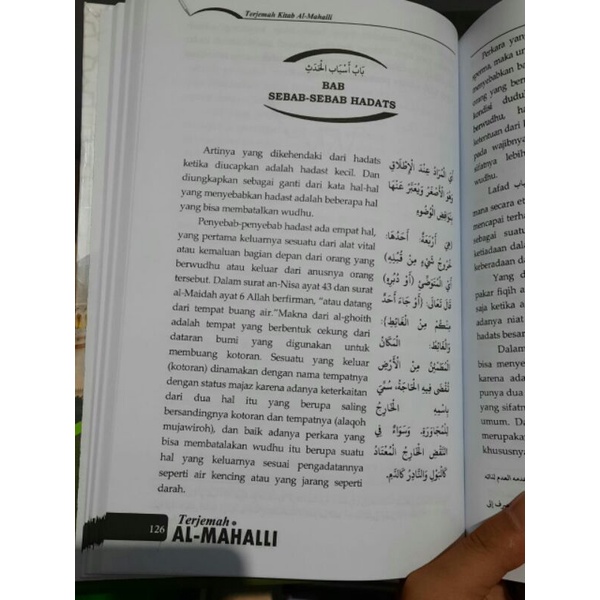 Terjemah Kitab Al-Mahalli
بَابُ أَسْبَابِ الْحَدَثِ
BAB
SEBAB-SEBAB HADATS
Artinya yang dikehendaki dari hadats
ketika diucapkan adalah hadast kecil. Dan
diungkapkan sebagai ganti dari kata hal-hal
yang menyebabkan hadast adalah beberapa hal
yang bisa membatalkan wudhu.
Penyebab-penyebab hadast ada empat hal,
yang pertama keluarnya sesuatu dari alat vital
atau kemaluan bagian depan dari orang yang
berwudhu atau keluar dari anusnya orang
tersebut. Dalam surat an-Nisa ayat 43 dan surat
al-Maidah ayat 6 Allah berfirman, “atau datang
dari tempat buang air.”Makna dari al-ghoith
adalah tempat yang berbentuk cekung dari
dataran bumi yang digunakan untuk
membuang kotoran. Sesuatu yang keluar
(kotoran) dinamakan dengan nama tempatnya
dengan status majaz karena adanya keterkaitan
dari dua hal itu yang berupa saling
bersandingnya kotoran dan tempatnya (alaqoh
mujawiroh), dan baik adanya perkara yang
bisa membatalakan wudhu itu berupa suatu
hal yang keluarnya sesuai pengadatannya
seperti air kencing atau yang jarang seperti
darah.
أَيِ الْمُرَادُ عِنْدَ الْإِطْلَاقِ
وَهُوَ الْأَصْغَرُ وَيُعَبَّرُ عَنْهَا
بِنَوَاقِضِ الْوُضُوءِ
(هِيَ أَرْبَعَةٌ: أَحَدُهَا:
خُرُوجُ شَيْءٍ مِنْ قُبُلِهِ)
أَيِ الْمُتَوَضِّئِ (أَوْ دُبُرِهِ)
قَالَ تَعَالَى: {أَوْ جَاءَ أَحَدٌ
مِنْكُمْ مِنَ الْغَائِطِ}:
وَالْغَائِطُ: الْمَكَانُ
الْمُطْمَئِنُّ مِنَ الْأَرْضِ
تُقْضَى فِيهِ الْحَاجَةُ، سُمِّيَ
بِاسْمِهِ الْخَارِجُ
لِلْمُجَاوَرَةِ. وَسَوَاءٌ فِي
النَّقْضِ الْخَارِجُ الْمُعْتَادُ
كَالْبَوْلِ وَالنَّادِرُ كَالدَّمِ.
126
Terjemah
AL-MAHALLI
Perkara yan
sperma, maka
menyebabkan ba
orang yang ber
kondisi dudu
berwudhu, ha
ketentuan dari
pada wajibny
sifatnya lebih
wudhu.
Lafad
mana secara et
mencapai terha
sebagai suatu
ketiadaan dal
keberadaan d
Yang d
pakar fiqih a
saja ketika a
adanya niat
hadats besar
Dalam
bisa menye
karena ada
punya dua
yang sifatn
umum. Da
merupakan
khususny